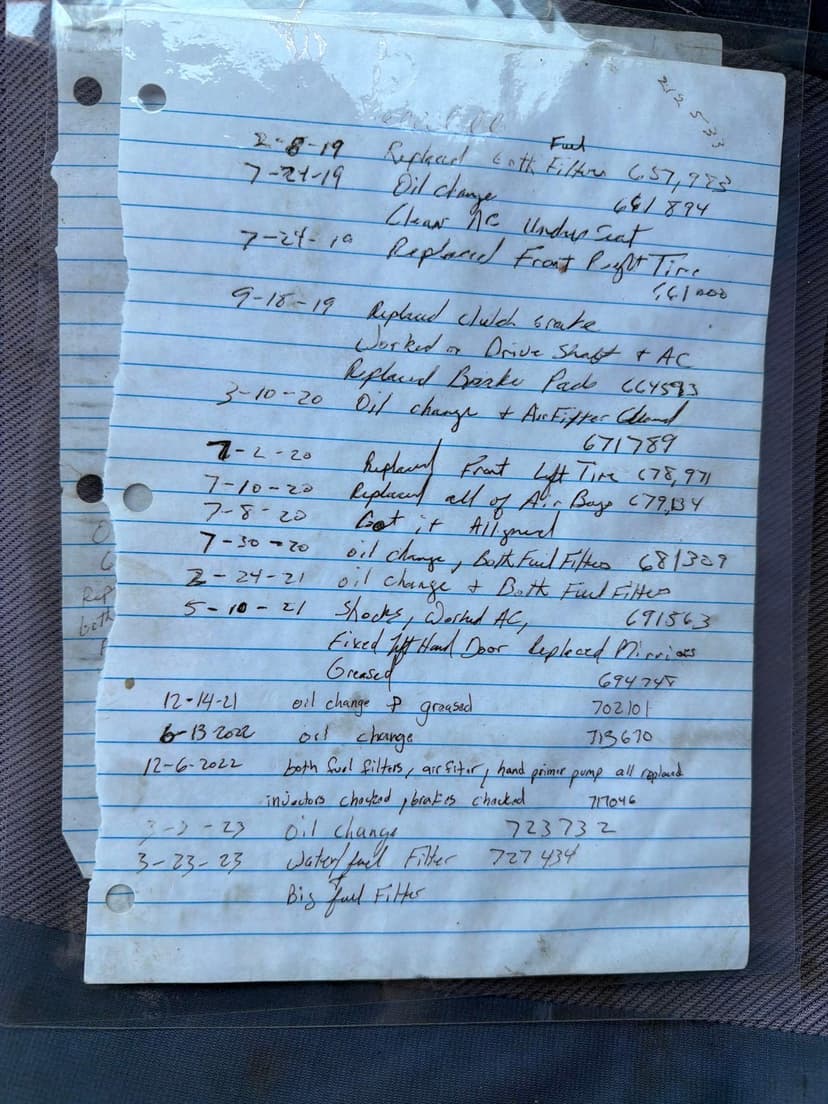 212 533
Fuel
2-8-19 Replaced both Filters 657,983
7-24-19 Oil change 661894
Clean AC Under Seat
7-24-19 Replaced Front Right Tire
661000
9-18-19 Replaced clutch brake
Worked on Drive Shaft + AC
Replaced Brake Pads 664593
3-10-20 Oil change + Air Filter Cleaned
671789
7-2-20 Replaced Front Left Tire 678,971
7-10-20 Replaced all of Air Bags 679,134
7-8-20 Got it Alligned
7-30-20 oil change, Both Fuel Filters 681309
2-24-21 oil change + Both Fuel Filters
5-10-21 Shocks, Worked AC, 691563
Fixed left Hand Door Replaced Mirriors
Greased 694748
12-14-21 oil change & greased 702101
6-13 2022 oil change 713670
12-6-2022 both fuel filters, air fitor, hand primer pump all replaced
injectors checked, brakes checked 717046
-23 Oil change 723732
3-23-23 Water/fuel Filter 727434
+
Big fuel Filter
O
Rep
both
F